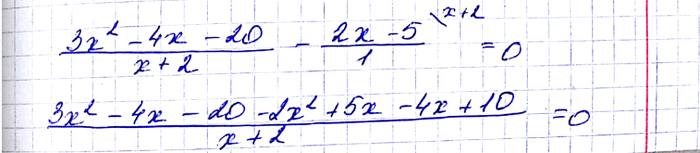 (3x² - 4x - 20)/(x + 2) - (2x - 5)/1 \x+2 = 0
(3x² - 4x - 20 - 2x² + 5x - 4x + 10)/(x + 2) = 0